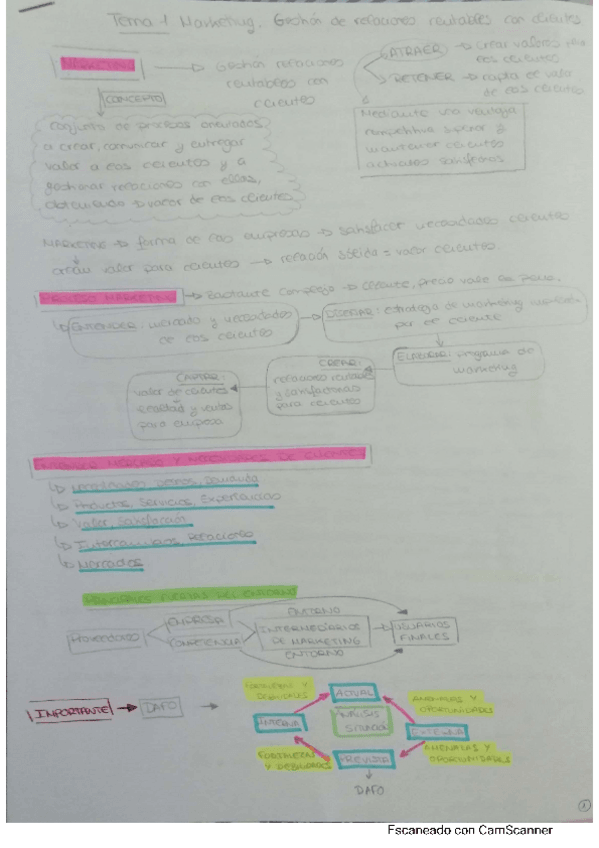 Tema 1 Marketing. Gestión de relaciones rentables con clientes
MARKETING → Gestión relaciones rentables con clientes
ATRAER → crear valores
los clientes
RETENER → capta el valor
de los clientes
Mediante una ventaja
competitiva superior y
mantener clientes
actuales satisfechos
CONCEPTO
Conjunto de procesos orientados
a crear, comunicar y entregar
valor a los clientes y a
gestionar relaciones con ellos,
obteniendo → valor de los clientes
MARKETING → forma de las empresas → satisfacer necesidades clientes
crean valor para clientes → relación sólida = valor clientes.
PROCESO MARKETING → Bastante complejo → cliente, precio
ENTENDER: mercado y necesidades
de los clientes
DISEÑAR: estrategia de marketing
por el cliente
ELABORAR: programa de
marketing
CREAR:
relaciones rentables
y satisfactorias
para clientes
CAPTAR:
valor de clientes
lealtad y ventas
para empresa
MERCADO Y NECESIDADES DE CLIENTES
Necesidades, Deseos, Demanda
Productos, Servicios, Experiencias
Valor, Satisfacción
Intercambios, Relaciones
Mercados
PRINCIPALES FUERZAS DEL ENTORNO
Proveedores
EMPRESA
COMPETENCIA
ENTORNO
INTERMEDIARIOS
DE MARKETING
ENTORNO
USUARIOS
FINALES
IMPORTANTE → DAFO
FORTALEZAS Y
DEBILIDADES
ACTUAL
AMENAZAS Y
OPORTUNIDADES
INTERNA
ANÁLISIS
SITUACIÓN
EXTERNA
FORTALEZAS
Y DEBILIDADES
PREVISTA
AMENAZAS Y
OPORTUNIDADES
DAFO
1
Escaneado con CamScanner